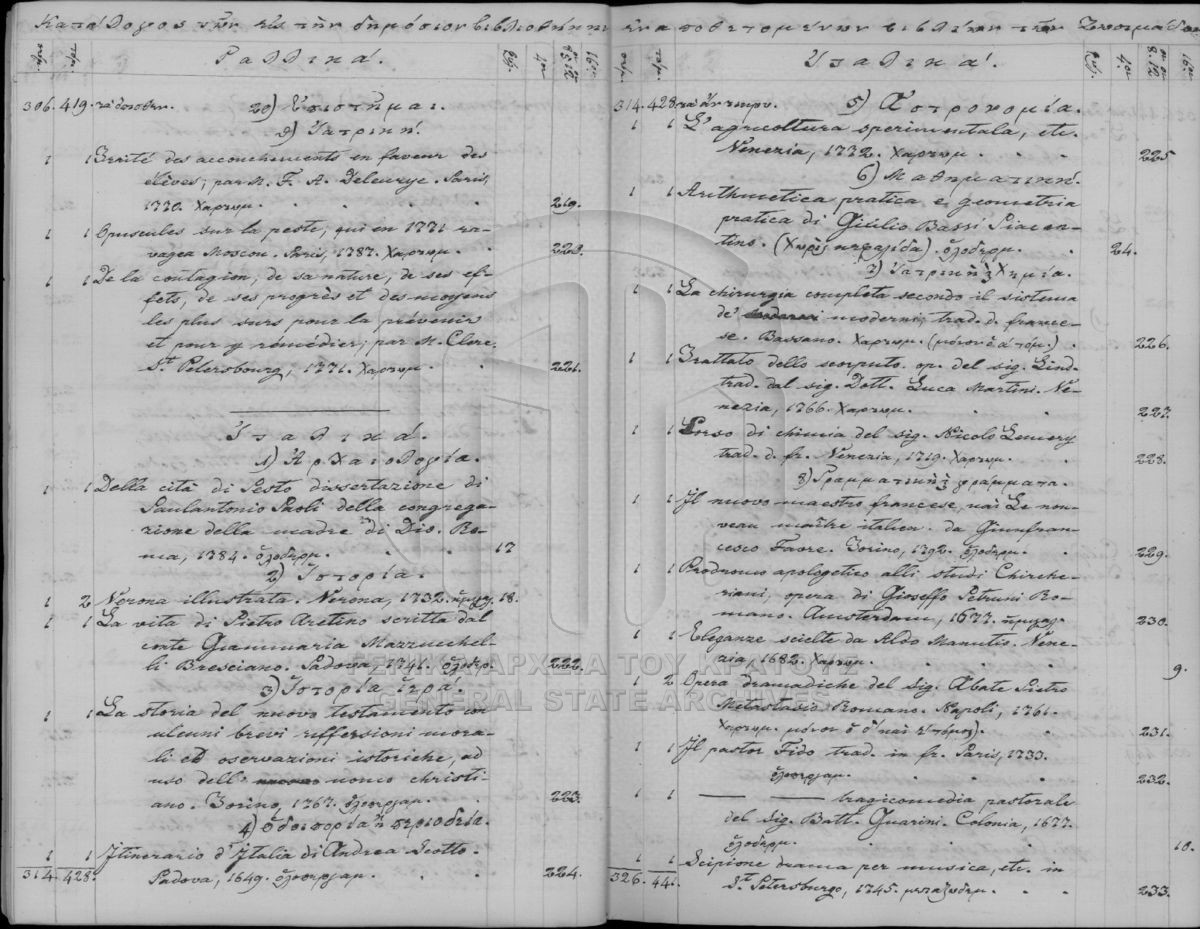 Κατάλογος τῶν εἰς τὴν δημόσιον βιβλιοθήκην
Γαλλικά.
306. 419. τὰ ὄπισθεν. 20) Ἐπιστῆμαι.
9) Ἰατρική.
1 1 Traité des accouchements en faveur des
élèves; par M. F. A. Deleurye. Paris,
1770. Χαρτωμ. 219.
1 1 Opuscules sur la peste, qui en 1771 ra-
vagea Moscou. Paris, 1787. Χαρτωμ. 220.
1 1 De la contagion, de sa nature, de ses ef-
fets, de ses progrès et des moyens
les plus surs pour la prévenir
et pour y remédier; par M. Clerc.
St. Petersbourg, 1771. Χαρτωμ. 221.
Ἰταλικά.
1) Ἀρχαιολογία.
1 1 Della città di Pesto dissertazione di
Paulantonio Paoli della congrega-
zione della madre di Dio. Ro-
ma, 1784. ὁλόδερμ. 17
2) Ἱστορία.
1 2 Verona illustrata. Verona, 1732. 18.
1 1 La vita di Pietro Aretino scritta dal
conte Giammaria Mazzuchel-
li Bresciano. Padova, 1741. 222.
3) Ἱστορία ἱερά.
1 1 La storia del nuovo testamento con
alcuni brevi riffersioni mora-
li ed oservazioni istoriche, ad
uso dell' uomo christi-
ano. Torino, 1767. 223.
4) ὁδοιπορία ἢ περιοδεία.
1 1 Itinerario d'Italia di Andrea Scotto.
314. 428. Padova, 1649. 224.
ἐναποθετομένων βιβλίων τῶν Ζωσιμαδῶν
Ἰταλικά.
314. 428. τὰ ἀντικρυ. 5) Ἀστρονομία.
1 1 L'agricoltura sperimentala, etc.
Venezia, 1732. Χαρτωμ. 225
6) Μαθηματική.
1 1 Arithmetica pratica, e geometria
pratica di Giulio Bassi Piacen-
tino. (Χωρὶς κεφαλίδα). ὁλόδερμ. 24.
7) Ἰατρικὴ ἢ Χημία.
1 1 La chirurgia completa secondo il sistema
de' moderni, trad. d. france-
se. Bassano. Χαρτωμ. (μόνον ὁ α' τόμ.) 226.
1 1 Trattato dello scorputo. op. del sig. Lind.
trad. dal sig. Dott. Luca Martini. Ve-
nezia, 1766. Χαρτωμ. 227.
1 1 Corso di chimia del sig. Nicolò Lemery
trad. d. fr. Venezia, 1719. Χαρτωμ. 228.
8) Γραμματικὴ ἢ γράμματα.
1 1 Il nuovo maestro francese, καὶ Le nou-
veau maître italien. da Gianfran-
cesco Favre. Torino, 1792. ὁλόδερμ. 229.
1 1 Prodromo apologetico alli studi Chirche-
riani, opera di Gioseffo Petruni Ro-
mano. Amsterdam, 1677. 230.
1 1 Eleganze scielte da Aldo Manutio. Vene-
zia, 1682. Χαρτωμ. 9.
1 2 Opera dramadiche del Sig. Abate Pietro
Metastasio Romano. Napoli, 1761.
Χαρτωμ. 231.
1 1 Il pastor Fido trad. in fr. Paris, 1733.
232.
1 1 ——— ——— tragicomedia pastorale
del Sig. Batt. Guarini. Colonia, 1677.
ὁλόδερμ. 10.
1 1 Scipione drama per musica, etc. in
326. 441. St. Petersburgo, 1745. 233.
ΓΕΝΙΚΑ ΑΡΧΕΙΑ ΤΟΥ ΚΡΑΤΟΥΣ
GENERAL STATE ARCHIVES